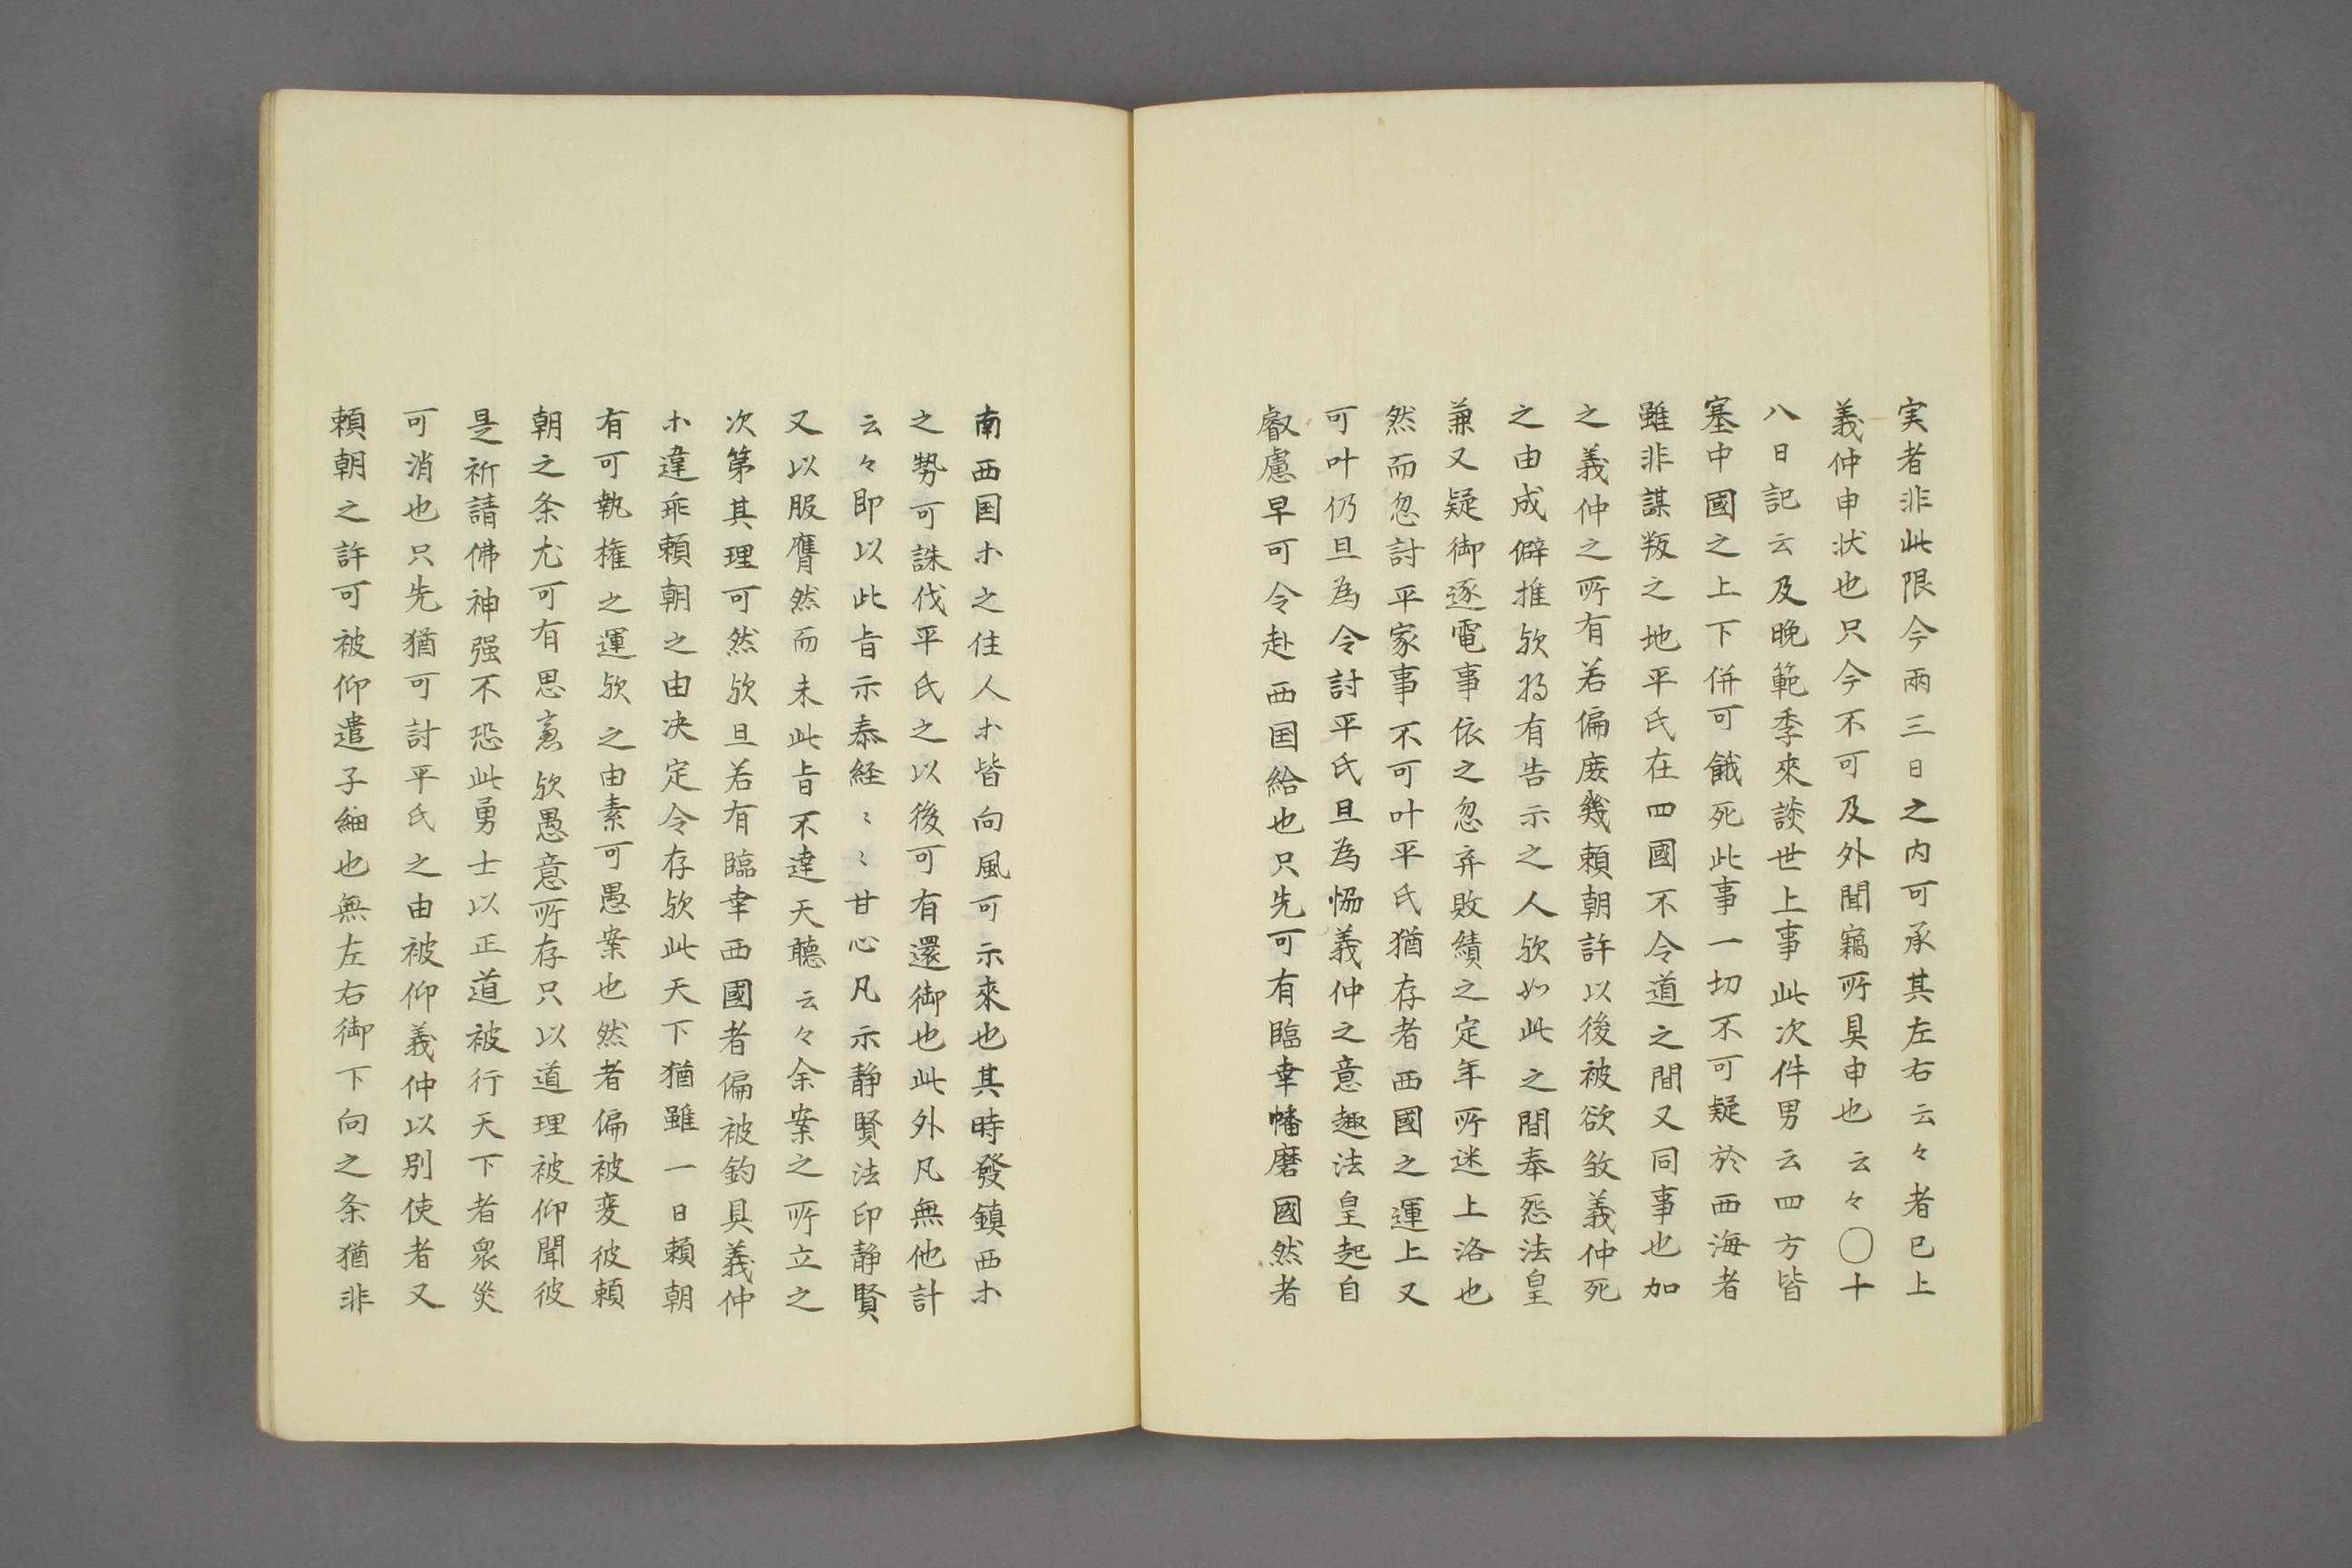 実者非此限今両三日之内可承其左右云々者已上
義仲申状也只今不可及外聞竊所具申也云々〇十
八日記云及晩範季來談世上事此次件男云四方皆
塞中國之上下併可餓死此事一切不可疑於西海者
雖非謀叛之地平氏在四國不令道之間又同事也加
之義仲之所有若偏庻幾頼朝許以後被欲欵義仲死
之由成僻推欤将有告示之人欤如此之間奉怨法皇
兼又疑御逐電事依之忽弃敗績之定年所迷上洛也
然而忽討平家事不可叶平氏猶存者西國之運上又
可叶仍且為令討平氏且為恊義仲之意趣法皇起自
叡慮早可令赴西国給也只先可有臨幸幡磨國然者
南西国ホ之住人ホ皆向風可示來也其時發鎮西ホ
之勢可誅伐平氏之以後可有還御也此外凡無他計
云々即以此旨示泰経〻〻甘心凡示静賢法印静賢
又以服膺然而未此旨不達天聽云々余案之所立之
次第其理可然欤且若有臨幸西國者偏被釣具義仲
ホ違乖頼朝之由决定令存欤此天下猶雖一日頼朝
有可執権之運欤之由素可愚案也然者偏被変彼頼
朝之条尤可有思慮欤愚意所存只以道理被仰聞彼
是祈請佛神强不恐此勇士以正道被行天下者衆災
可消也只先猶可討平氏之由被仰義仲以別使者又
頼朝之許可被仰遣子細也無左右御下向之条猶非